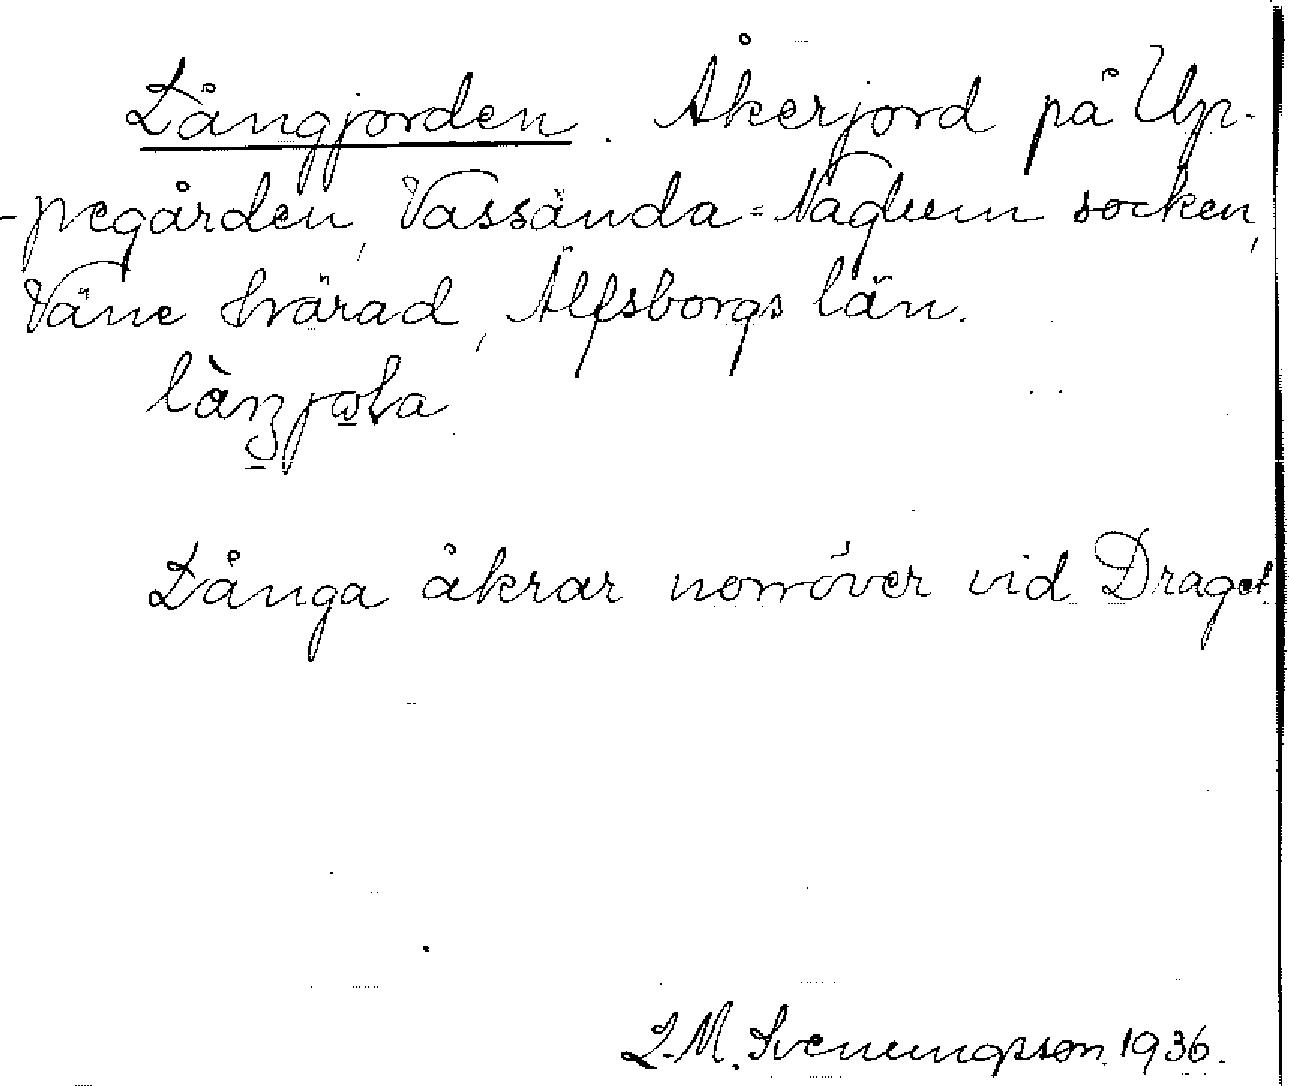 Långjorden. Åkerjord på Up-
-pegården, Vassända-Naglum socken,
Väne härad, Älfsborgs län.
Långa åkrar norröver vid Draget.
L.M. Svenungsson 1936.